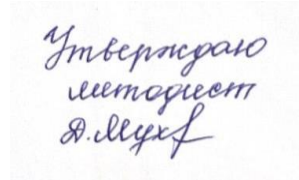 Утверждаю
методист
Д.Мухf